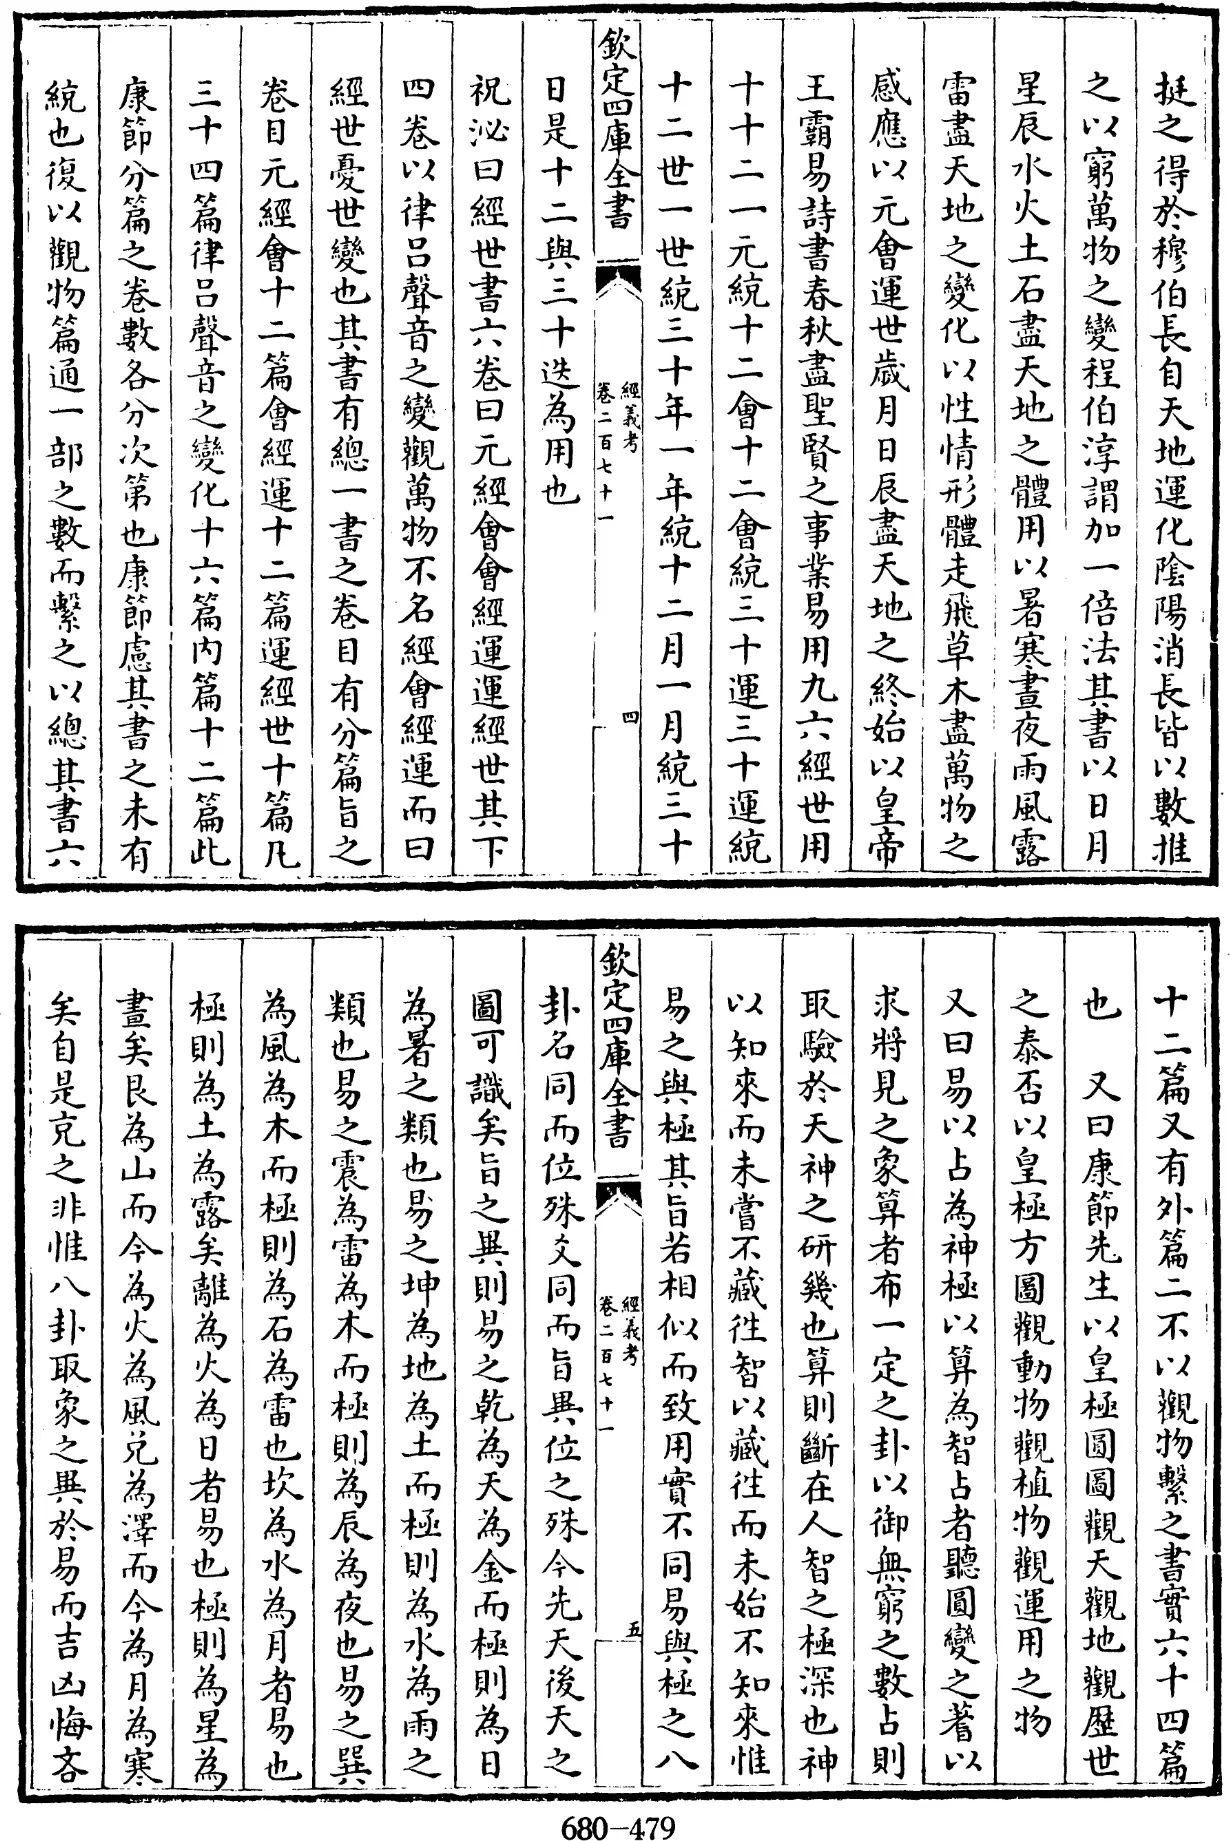 挺之得於穆伯長自天地運化陰陽消長皆以數推
之以窮萬物之變程伯淳謂加一倍法其書以日月
星辰水火土石盡天地之體用以暑寒晝夜雨風露
雷盡天地之變化以性情形體走飛草木盡萬物之
感應以元會運世歲月日辰盡天地之終始以皇帝
王霸易詩書春秋盡聖賢之事業易用九六經世用
十十二一元統十二會十二會統三十運三十運統
十二世一世統三十年一年統十二月一月統三十
欽定四庫全書
經義考
卷二百七十一
四
日是十二與三十迭為用也
祝泌曰經世書六卷曰元經會會經運運經世其下
四卷以律呂聲音之變觀萬物不名經會經運而曰
經世憂世變也其書有總一書之卷目有分篇旨之
卷目元經會十二篇會經運十二篇運經世十篇凡
三十四篇律呂聲音之變化十六篇内篇十二篇此
康節分篇之卷數各分次第也康節慮其書之未有
統也復以觀物篇通一部之數而繫之以總其書六
十二篇又有外篇二不以觀物繫之書實六十四篇
也　又曰康節先生以皇極圓圖觀天觀地觀歷世
之泰否以皇極方圖觀動物觀植物觀運用之物
又曰易以占為神極以算為智占者聽圓變之蓍以
求將見之象算者布一定之卦以御無窮之數占則
取驗於天神之研幾也算則斷在人智之極深也神
以知來而未嘗不藏往智以藏往而未始不知來惟
易之與極其旨若相似而致用實不同易與極之八
欽定四庫全書
經義考
卷二百七十一
五
卦名同而位殊爻同而旨異位之殊今先天後天之
圖可識矣旨之異則易之乾為天為金而極則為日
為暑之類也易之坤為地為土而極則為水為雨之
類也易之震為雷為木而極則為辰為夜也易之巽
為風為木而極則為石為雷也坎為水為月者易也
極則為土為露矣離為火為日者易也極則為星為
晝矣艮為山而今為火為風兌為澤而今為月為寒
矣自是克之非惟八卦取象之異於易而吉凶悔吝
680—479